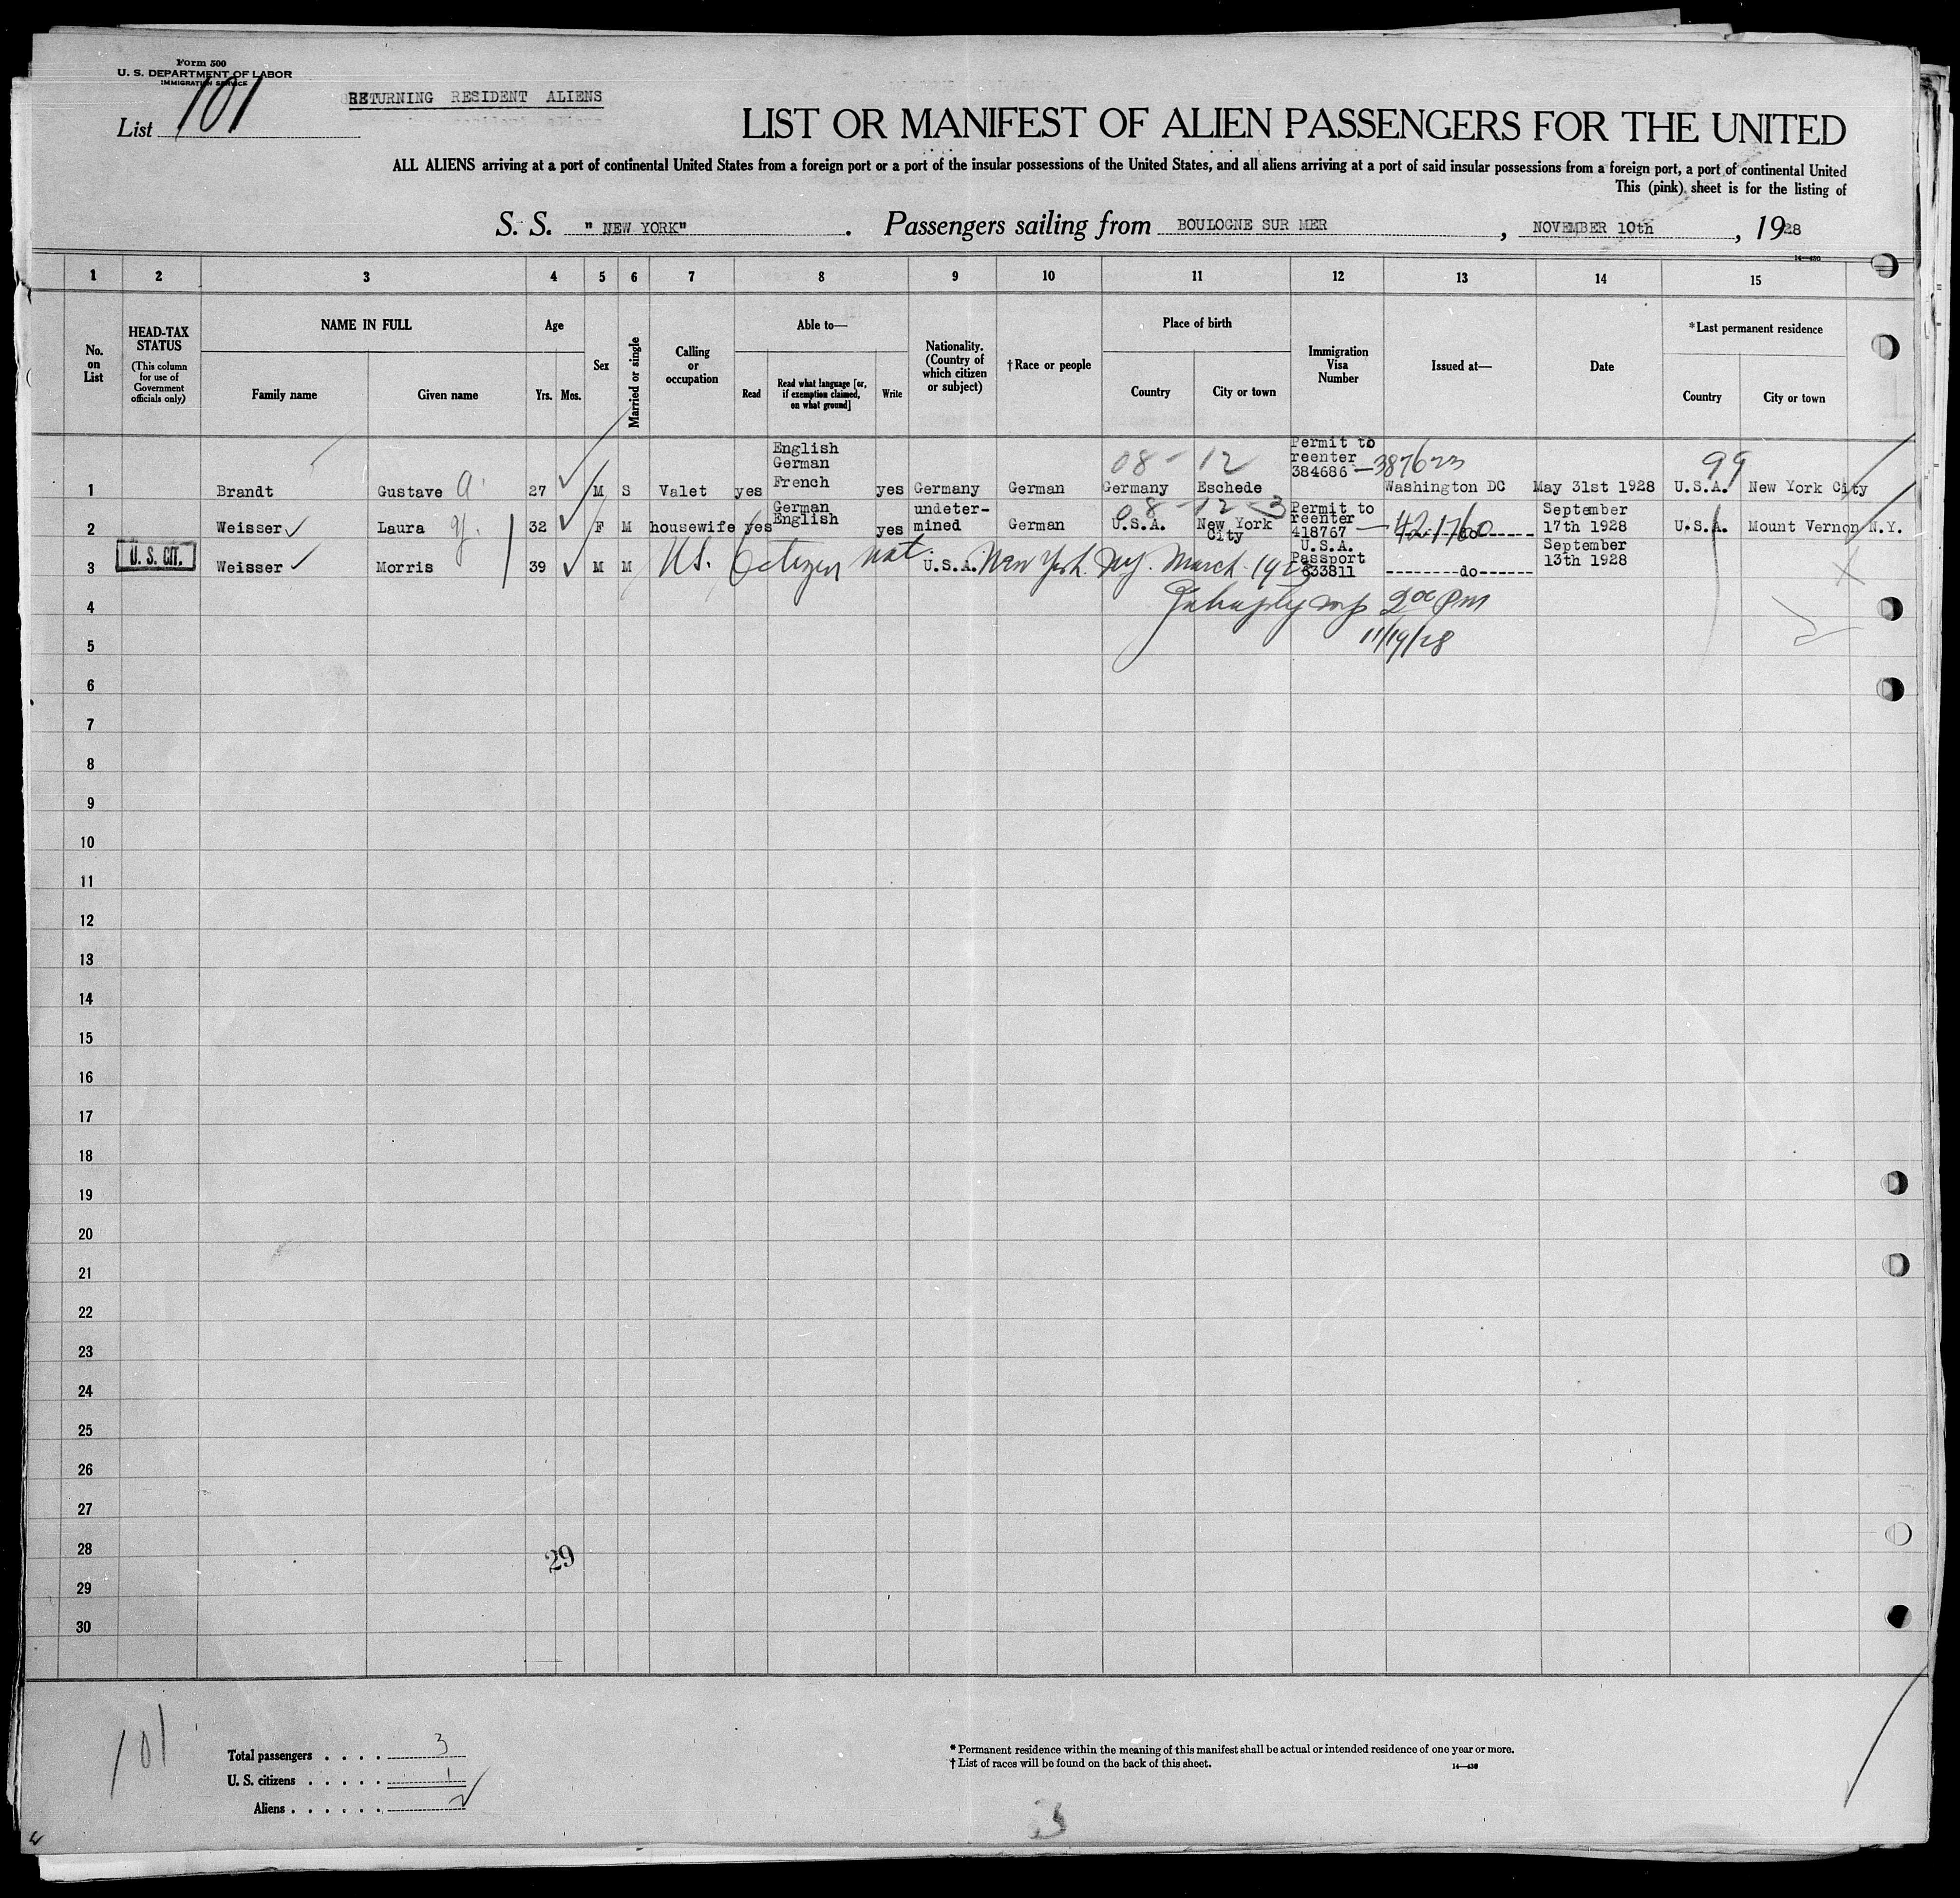 Form 500
U. S. DEPARTMENT OF LABOR
IMMIGRATION SERVICE
List 101
RETURNING RESIDENT ALIENS
LIST OR MANIFEST OF ALIEN PASSENGERS FOR THE UNITED
ALL ALIENS arriving at a port of continental United States from a foreign port or a port of the insular possessions of the United States, and all aliens arriving at a port of said insular possessions from a foreign port, a port of continental United
This (pink) sheet is for the listing of
S. S. " NEW YORK" . Passengers sailing from BOULOGNE SUR MER , NOVEMBER 10th , 1928
14—430
1 2 3 4 5 6 7 8 9 10 11 12 13 14 15
No. on List
HEAD-TAX STATUS
(This column for use of Government officials only)
NAME IN FULL
Family name
Given name
Age
Yrs. Mos.
Sex
Married or single
Calling or occupation
Able to—
Read
Read what language [or, if exemption claimed, on what ground]
Write
Nationality. (Country of which citizen or subject)
†Race or people
Place of birth
Country
City or town
Immigration Visa Number
Issued at—
Date
*Last permanent residence
Country
City or town
1 Brandt Gustave A. 27 M S Valet yes English German French yes Germany German 08-12 Germany Eschede Permit to reenter 384686 —387623 Washington DC May 31st 1928 99 U.S.A. New York City
2 Weisser Laura 32 F M housewife yes German English yes undeter-mined German 08-12 3 U.S.A. New York City Permit to reenter 418767 — 421760 ------do------ September 17th 1928 U.S.A. Mount Vernon N.Y.
3 U. S. CIT. Weisser Morris 39 M M US. Citizen Nat. U.S.A. New York. NY. March 192 U.S.A. Passport 633811 --------do------ September 13th 1928
4 2 00 PM
5 11/19/28
6
7
8
9
10
11
12
13
14
15
16
17
18
19
20
21
22
23
24
25
26
27
28
29
29
30
101
Total passengers . . . . 3
U. S. citizens . . . . . 1
Aliens . . . . . . 2
* Permanent residence within the meaning of this manifest shall be actual or intended residence of one year or more.
† List of races will be found on the back of this sheet.
14—430